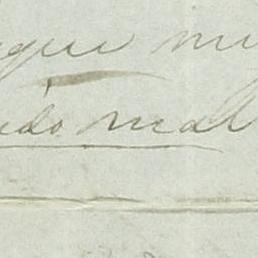 que mu
ido mal